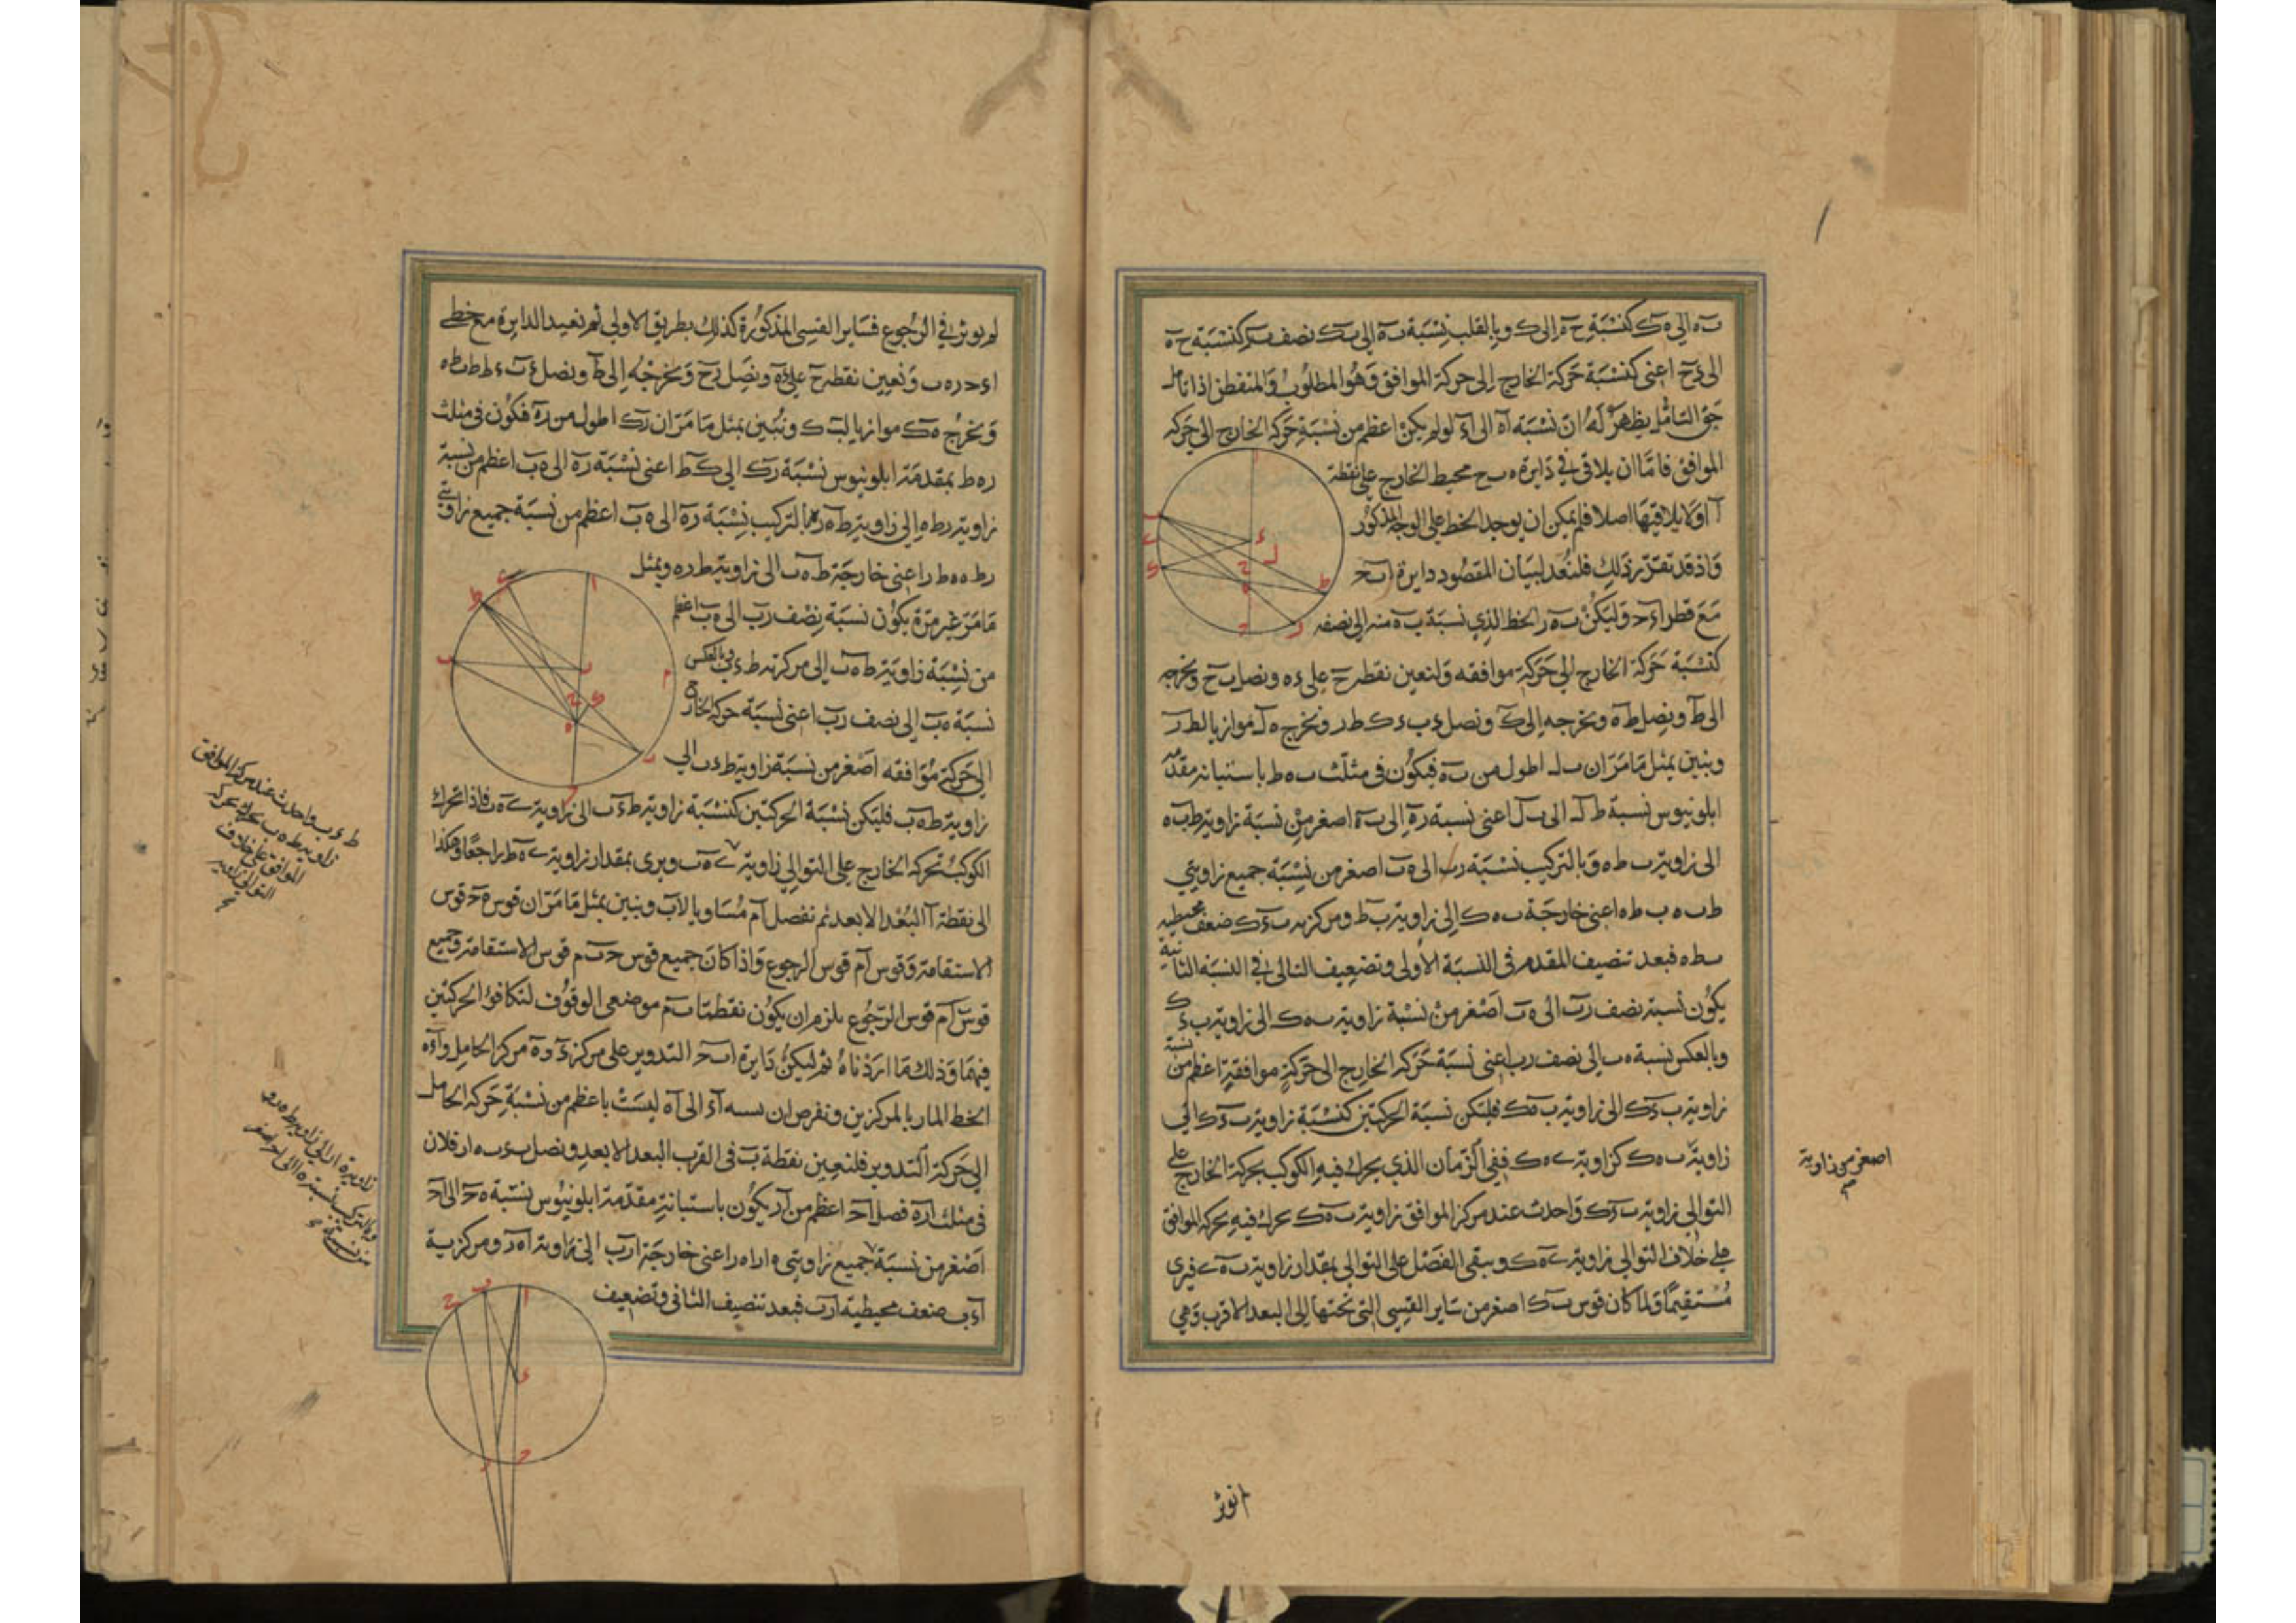 ب ه الى ه ك كنسبة ح ه الى ك وبالقلب نسبة ب ه الى ب ك نصف كنسبة ح ه
الى ء ح اعنى كنسبة حركة الخارج الى حركة الموافق وهو المطلوب والمتفطن اذا تامل
حق التامل يظهر له ان نسبة اه الى اء لو لم يكن اعظم من نسبة حركة الخارج الى حركة
الموافق فاما ان يلاقى فى دايرة ه ب ح محيط الخارج على نقطة
آ او لا يلاقيها اصلا فلم يمكن ان يوجد الخط على الوجه المذكور
واذ قد تقرر ذلك فلنعد لبيان المقصود دايرة اب ح
مع قطر اء ح وليكن ب ه ر الخط الذي نسبة ب ه منه الى نصفه
كنسبة حركة الخارج الى حركة موافقه ولنعين نقطة ح على ء ه ونصل ب ح ونخرجه
الى ط ونصل ط ه ونخرجه الى ك ونصل ء ب ء ك ط ر ونخرج ه ل موازيا لط ر
ونبين بمثل ما مر ان ب ل اطول من ب ه فيكون فى مثلث ب ه ط باستبانة مقدمة
ابلونيوس نسبة ط ل الى ب ل اعنى نسبة ر ه الى ب ه اصغر من نسبة زاوية ط ب ه
الى زاوية ب ط ه وبالتركيب نسبة ر ب الى ه ب اصغر من نسبة جميع زاويتى
ط ب ه ب ط ه اعنى خارجة ب ه ك الى زاوية ب ط ومركزية ب ء ك ضعف محيطية
ب ط ه فبعد تنصيف المقدم فى النسبة الاولى وتضعيف التالى فى النسبة الثانية
يكون نسبة نصف ر ب الى ه ب اصغر من نسبة زاوية ب ه ك الى زاوية ب ء ك
وبالعكس نسبة ه ب الى نصف ر ب اعنى نسبة حركة الخارج الى حركة موافقة اعظم من نسبة
زاوية ب ء ك الى زاوية ب ه ك فليكن نسبة الحركتين كنسبة زاوية ب ء ك الى
زاوية ب ه ك كزاوية ى ه ك ففى الزمان الذي يحرك فيه الكوكب بحركة الخارج على
التوالى زاوية ب ء ك واحدث عند مركز الموافق زاوية ب ه ك يحرك فيه بحركة الموافق
على خلاف التوالى زاوية ى ه ك ويبقى الفضل على التوالى بمقدار زاوية ب ه ى فيرى
مستقيما ولما كان قوس ب ك اصغر من ساير القسى التى تحتها الى البعد الاقرب وهى
اصغر من زاوية
لم يوثر فى الرجوع فساير القسى المذكورة كذلك بطريق الاولى ثم نعيد الدايرة مع خطى
اء ح ر ه ب ونعين نقطة ح على ء ه ونصل ر ح ونخرجه الى ط ونصل ء ب ء ط ط ب ط ه
ونخرج ه ك موازيا لب ط ونبين بمثل ما مر ان ر ك اطول من ر ه فيكون فى مثلث
ر ه ط بمقدمة ابلونيوس نسبة ر ك الى ك ط اعنى نسبة ر ه الى ه ب اعظم من نسبة
زاوية ر ط ه الى زاوية ط ر ه وبالتركيب نسبة ر ب الى ه ب اعظم من نسبة جميع زاويتى
ر ط ه ه ط ر اعنى خارجة ط ه ب الى زاوية ط ر ه وبمثل
ما مر غير مرة يكون نسبة نصف ر ب الى ه ب اعظم
من نسبة زاوية ط ه ب الى مركزية ط ء ب وبالعكس
نسبة ه ب الى نصف ر ب اعنى نسبة حركة الخارج
الى حركة موافقه اصغر من نسبة زاوية ط ء ب الى
زاوية ط ه ب فليكن نسبة الحركتين كنسبة زاوية ط ء ب الى زاوية ى ه ب فاذا تحرك
الكوكب بحركة الخارج على التوالى زاوية ى ه ب ويرى بمقدار زاوية ى ه ط راجعا وهكذا
الى نقطة آ البعد الابعد ثم نفصل ام مساويا لاب ونبين بمثل ما مر ان قوس م ح قوس
الاستقامة وقوس ام قوس الرجوع واذا كان جميع قوس ح ب م قوس الاستقامة وجميع
قوس ام قوس الرجوع يلزم ان يكون نقطتا ب م موضعى الوقوف لتكافؤ الحركتين
فيهما وذلك ما اردناه ثم ليكن دايرة اب ح التدوير على مركز ء و ه مركز الحامل و اء ه
الخط المار بالمركزين ونفرض ان نسبة اء الى اه ليست باعظم من نسبة حركة الحامل
الى حركة التدوير فلنعين نقطة ب فى القرب البعد الابعد ونصل ب ء ب ه ار فلان
فى مثلث ار ه فصل اح اعظم من ار يكون باستبانة مقدمة ابلونيوس نسبة ه ح الى اح
اصغر من نسبة جميع زاويتى ه ا ر ا ه ر اعنى خارجة ار ب الى زاوية ا ه ر ومركزية
اء ب ضعف محيطية ار ب فبعد تنصيف الثانى وتضعيف
ط ء ب واحدث عند مركز الموافق
زاوية ط ه ب يحرك بحركة
الموافق على خلاف
التوالى زاوية
انوثر